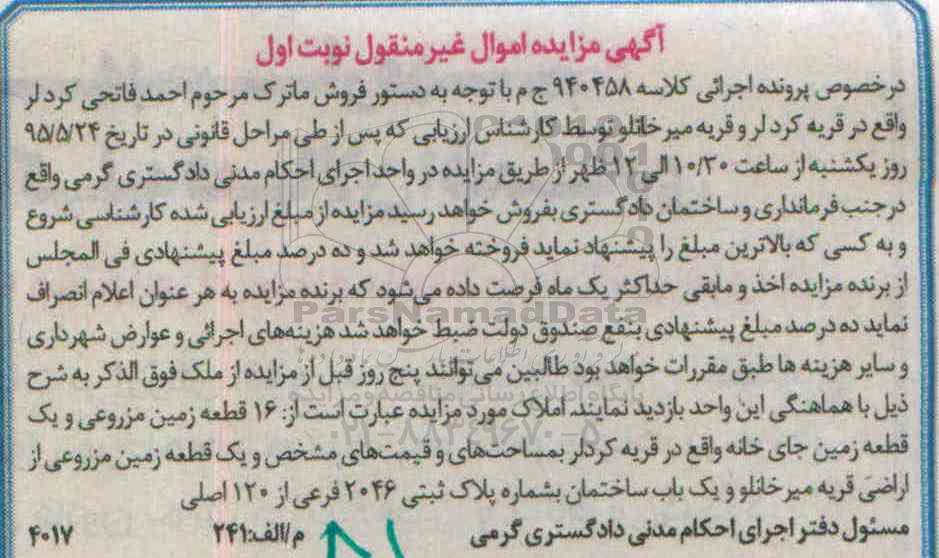 آگهی مزایده اموال غیرمنقول نوبت اول
درخصوص پرونده اجرائی کلاسه ۹۴۰۴۵۸ ج م با توجه به دستور فروش ماترک مرحوم احمد فاتحی کردلر
واقع در قریه کردلر و قریه میرخانلو توسط کارشناس ارزیابی که پس از طی مراحل قانونی در تاریخ ۹۵/۵/۲۴
روز یکشنبه از ساعت ۱۰/۳۰ الی ۱۲ ظهر از طریق مزایده در واحد اجرای احکام مدنی دادگستری گرمی واقع
درجنب فرمانداری و ساختمان دادگستری بفروش خواهد رسید مزایده از مبلغ ارزیابی شده کارشناسی شروع
و به کسی که بالاترین مبلغ را پیشنهاد نماید فروخته خواهد شد و ده درصد مبلغ پیشنهادی فی المجلس
از برنده مزایده اخذ و مابقی حداکثر یک ماه فرصت داده می‌شود که برنده مزایده به هر عنوان اعلام انصراف
نماید ده درصد مبلغ پیشنهادی بنفع صندوق دولت ضبط خواهد شد هزینه‌های اجرائی و عوارض شهرداری
و سایر هزینه ها طبق مقررات خواهد بود طالبین می‌توانند پنج روز قبل از مزایده از ملک فوق الذکر به شرح
ذیل با هماهنگی این واحد بازدید نمایند. املاک مورد مزایده عبارت است از: ۱۶ قطعه زمین مزروعی و یک
قطعه زمین جای خانه واقع در قریه کردلر بمساحت‌های و قیمت‌های مشخص و یک قطعه زمین مزروعی از
اراضی قریه میرخانلو و یک باب ساختمان بشماره پلاک ثبتی ۲۰۴۶ فرعی از ۱۲۰ اصلی
مسئول دفتر اجرای احکام مدنی دادگستری گرمی م/الف:۲۴۱ ۴۰۱۷
ParsNamadData
پایگاه اطلاع رسانی مناقصه و مزایده
۰۲۱-۸۸۳۴۹۶۷۰-۵